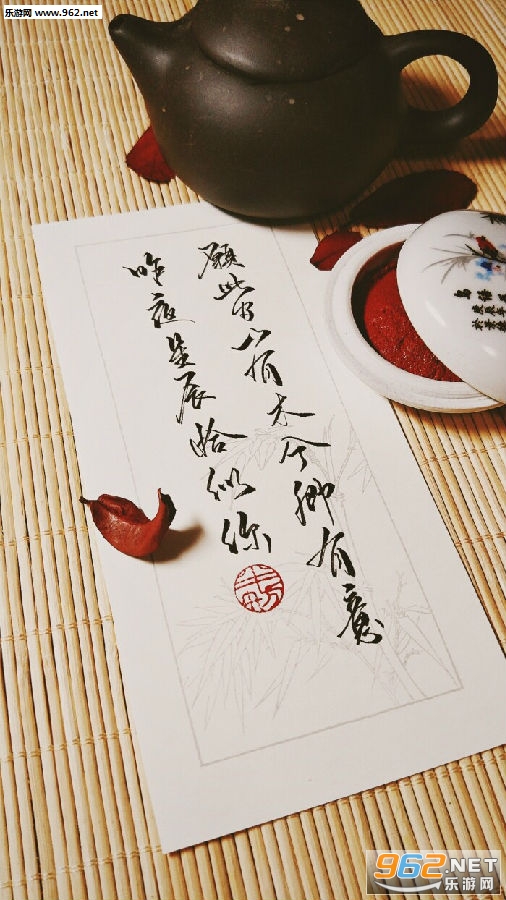 乐游网 www.962.net
願此间山有木兮卿有意
昨夜星辰恰似你
962.NET
乐游网